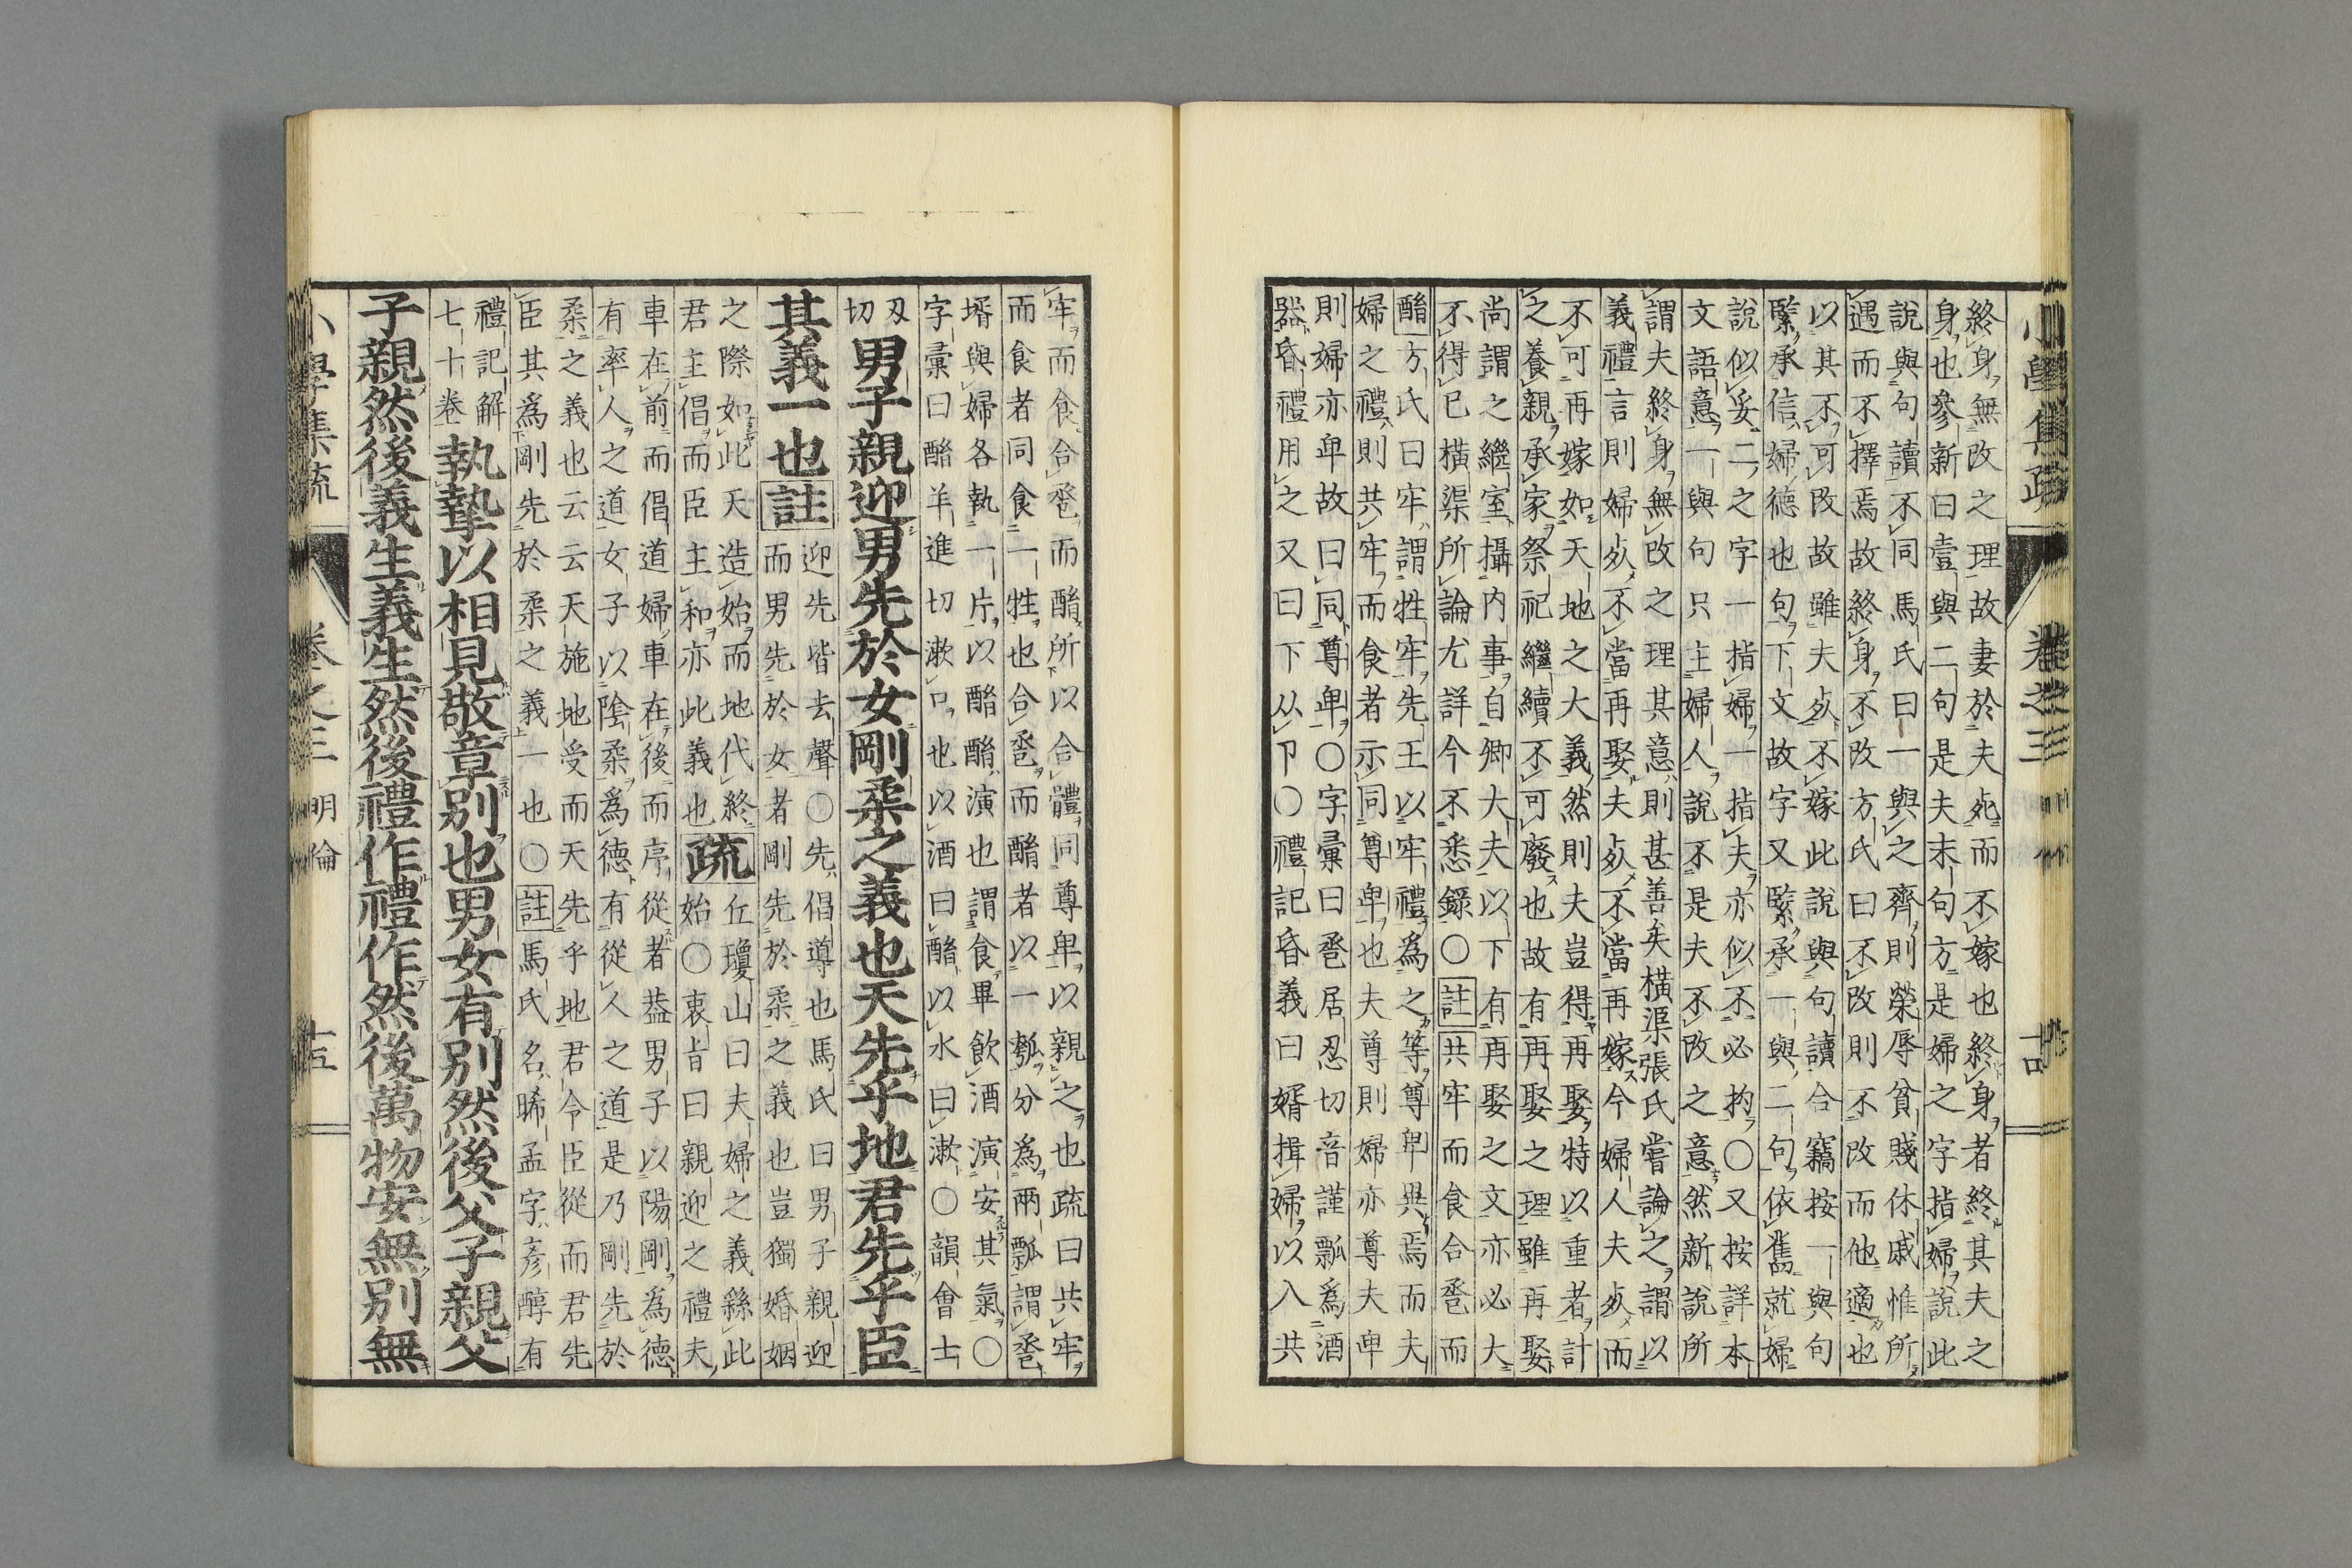 小學集疏 卷之三 十四
終身無改之理故妻於夫死而不嫁也終身者終其夫之
身也參新曰壹與二句是夫末句方是婦之字指婦說此
說與句讀不同馬氏曰一與之齊則榮辱貧賤休戚惟所
遇而不擇焉故終身不改方氏曰不改則不改而他適也
以其不可改故雖夫死不嫁此說與句讀合竊按一與句
緊承信婦德也句下文故字又緊承一與二句依舊就婦
說似妥二之字一指婦一指夫亦似不必拘○又按詳本
文語意一與句只主婦人說不是夫不改之意然新說所
謂夫終身無改之理其意則甚善矣橫渠張氏嘗論之謂以
義禮言則婦死不當再娶夫死不當再嫁今婦人夫死而
不可再嫁如天地之大義然則夫豈得再娶特以重者計
之養親承家祭祀繼續不可廢也故有再娶之理雖再娶
尚謂之繼室攝內事自卿大夫以下有再娶之文亦必大
不得已橫渠所論尤詳今不悉錄○註共牢而食合卺而
酳方氏曰牢謂牲牢先王以牢禮爲之等尊卑異焉而夫
婦之禮則共牢而食者示同尊卑也夫尊則婦亦尊夫卑
則婦亦卑故曰同尊卑○字彙曰卺居忍切音謹瓢爲酒
器昏禮用之又曰下从卩○禮記昏義曰婿揖婦以入共
牢而食合卺而酳所以合體同尊卑以親之也疏曰共牢
而食者同食一牲也合卺而酳者以一瓠分爲兩瓢謂卺
壻與婦各執一片以酳酳演也謂食畢飲酒演安其氣○
字彙曰酳羊進切漱口也以酒曰酳以水曰漱○韻會士
刄切
男子親迎男先於女剛柔之義也天先乎地君先乎臣
其義一也
註迎先皆去聲○先倡導也馬氏曰男子親迎
而男先於女者剛先於柔之義也豈獨婚姻
之際如此天造始而地代終
君主倡而臣主和亦此義也
疏丘瓊山曰夫婦之義繇此
始○衷旨曰親迎之禮夫
車在前而倡道婦車在後而序從者葢男子以陽剛爲德
有率人之道女子以陰柔爲德有從人之道是乃剛先於
柔之義也云云天施地受而天先乎地君令臣從而君先
臣其爲剛先於柔之義一也○註馬氏名晞孟字彥醇有
禮記解
七十卷
執摯以相見敬章別也男女有別然後父子親父
子親然後義生義生然後禮作禮作然後萬物安無別無
小學集疏 卷之三 明倫 十五